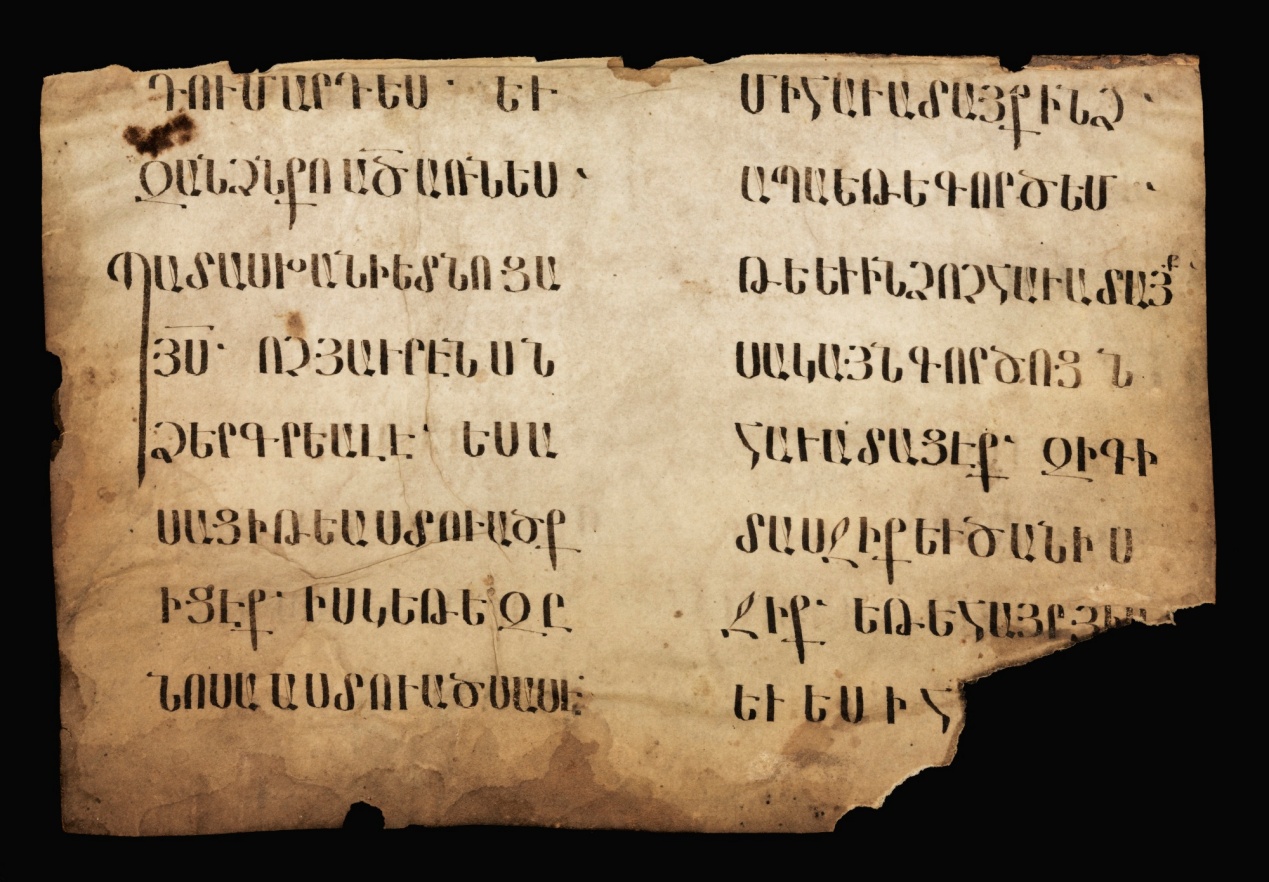 ԴՈՒՄԱՐԴԵՍ ՝ ԵՒ
ԶԱՆՁՆՔՈԱԾԱՌՆԵՍ ՝
ՊԱՏԱՍԽԱՆԻԵՏՆՈՑԱ
ՅՍ՝ ՈՉՅԱՒՐԷՆՍՆ
ՁԵՐԳՐԵԱԼԷ՝ ԵՍԱ
ՍԱՑԻԹԵԱՍՏՈՒԱԾՔ
ԻՑԷՔ՝ ԻՍԿԵԹԵԶԸ
ՆՈՍԱԱՍՏՈՒԱԾՍԱՍԷ
ՄԻՀԱՒԱՏԱՅՔԻՆՁ ՝
ԱՊԱԵԹԵԳՈՐԾԵՄ ՝
ԹԵԵՒԻՆՁՈՉՀԱՒԱՏԱՅՔ ՝
ՍԱԿԱՅՆԳՈՐԾՈՑՆ
ՀԱՒԱՏԱՑԷՔ՝ ԶԻԳԻ
ՏԱՍՋԻՔԵՒԾԱՆԻՍ
ՋԻՔ՝ ԵԹԵՀԱՅՐ
ԵՒ ԵՍ Ի Հ